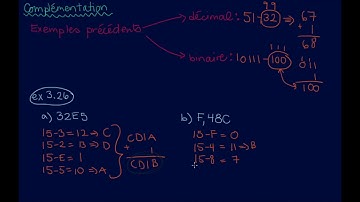 Complémentation
Exemples précédents
décimal: 51-32 ⇒ 67
99
+ 1
68
binaire: 10111-100
111
011
1
100
ex 3.26
a) 32E5
15-3=12 → C
15-2=13 → D
15-E=1
15-5=10 ⇒ A
CD1A
+ 1
CD1B
b) F,48C
15-F=0
15-4=11 ⇒ B
15-8=7